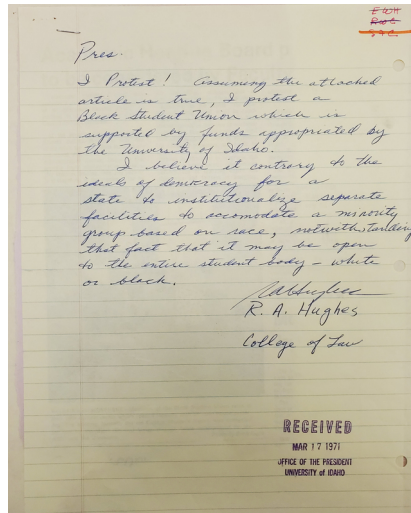 EWH
RWC
Pres.
I Protest! Assuming the attached
article is true, I protest a
Black Student Union which is
supported by funds appropriated by
the University of Idaho.
I believe it contrary to the
ideals of democracy for a
state to institutionalize separate
facilities to accomodate a minority
group based on race, notwithstanding
that fact that it may be open
to the entire student body – white
or black.
RAHughes
R. A. Hughes
College of Law
RECEIVED
MAR 17 1971
OFFICE OF THE PRESIDENT
UNIVERSITY of IDAHO